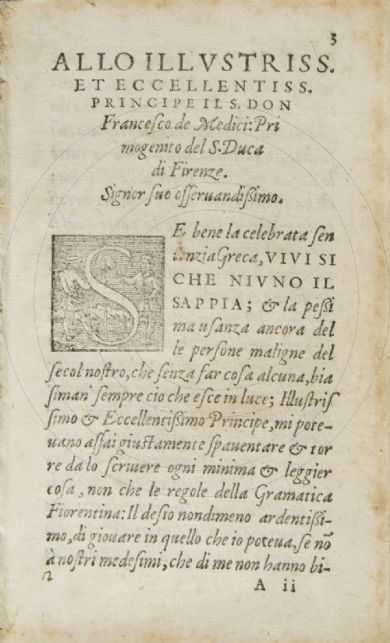 3
ALLO ILLVSTRISS.
ET ECCELLENTISS.
PRINCIPE IL S. DON
Francesco de Medici: Pri
mogenito del S. Duca
di Firenze.
Signor suo osseruandißimo.
SE bene la celebrata sen
tenzia Greca, VIVI SI
CHE NIVNO IL
SAPPIA; & la peßi
ma usanza ancora del
le persone maligne del
secol nostro, che senza far cosa alcuna, bia
siman' sempre cio che esce in luce; Illustris
simo & Eccellentißimo Principe, mi pote-
uano assai giustamente spauentare & tor
re da lo scriuere ogni minima & leggier
cosa, non che le regole della Gramatica
Fiorentina: Il desio nondimeno ardentißi-
mo, di giouare in quello che io poteua, se nõ
à nostri medesimi, che di me non hanno bi-
A ii